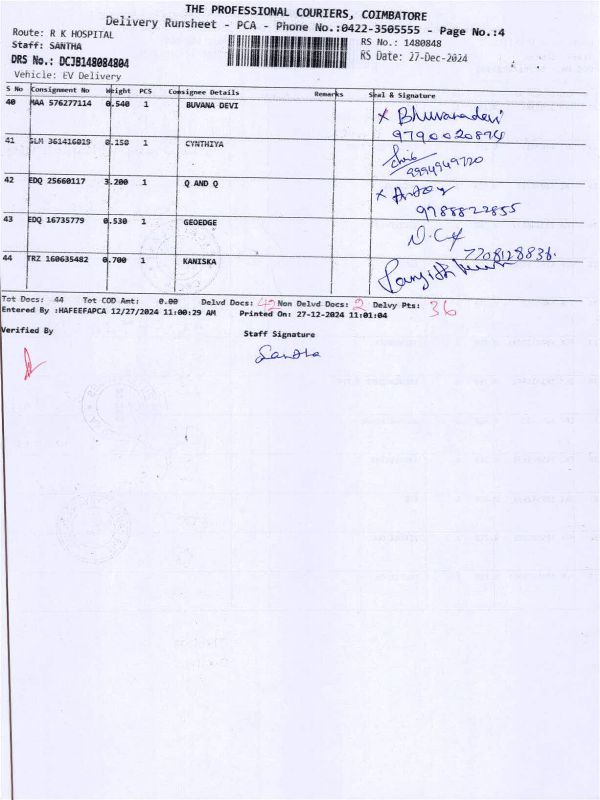 THE PROFESSIONAL COURIERS, COIMBATORE
Delivery Runsheet - PCA - Phone No.:0422-3505555 - Page No.:4
Route: R K HOSPITAL
RS No.: 1480848
Staff: SANTHA
RS Date: 27-Dec-2024
DRS No.: DCJB148084804
Vehicle: EV Delivery
S No Consignment No Weight PCS Consignee Details Remarks Seal & Signature
40 MAA 576277114 0.540 1 BUVANA DEVI x Bhuvanadevi
9790020874
41 SLM 361416019 0.150 1 CYNTHIYA
9994949720
42 EDQ 25660117 3.200 1 Q AND Q x Antony
9788822855
43 EDQ 16735779 0.530 1 GEOEDGE
7708128836.
44 TRZ 160635482 0.700 1 KANISKA
Tot Docs: 44 Tot COD Amt: 0.00 Delvd Docs: 42 Non Delvd Docs: 2 Delvy Pts: 36
Entered By :HAFEEFAPCA 12/27/2024 11:00:29 AM Printed On: 27-12-2024 11:01:04
Verified By Staff Signature
Santha